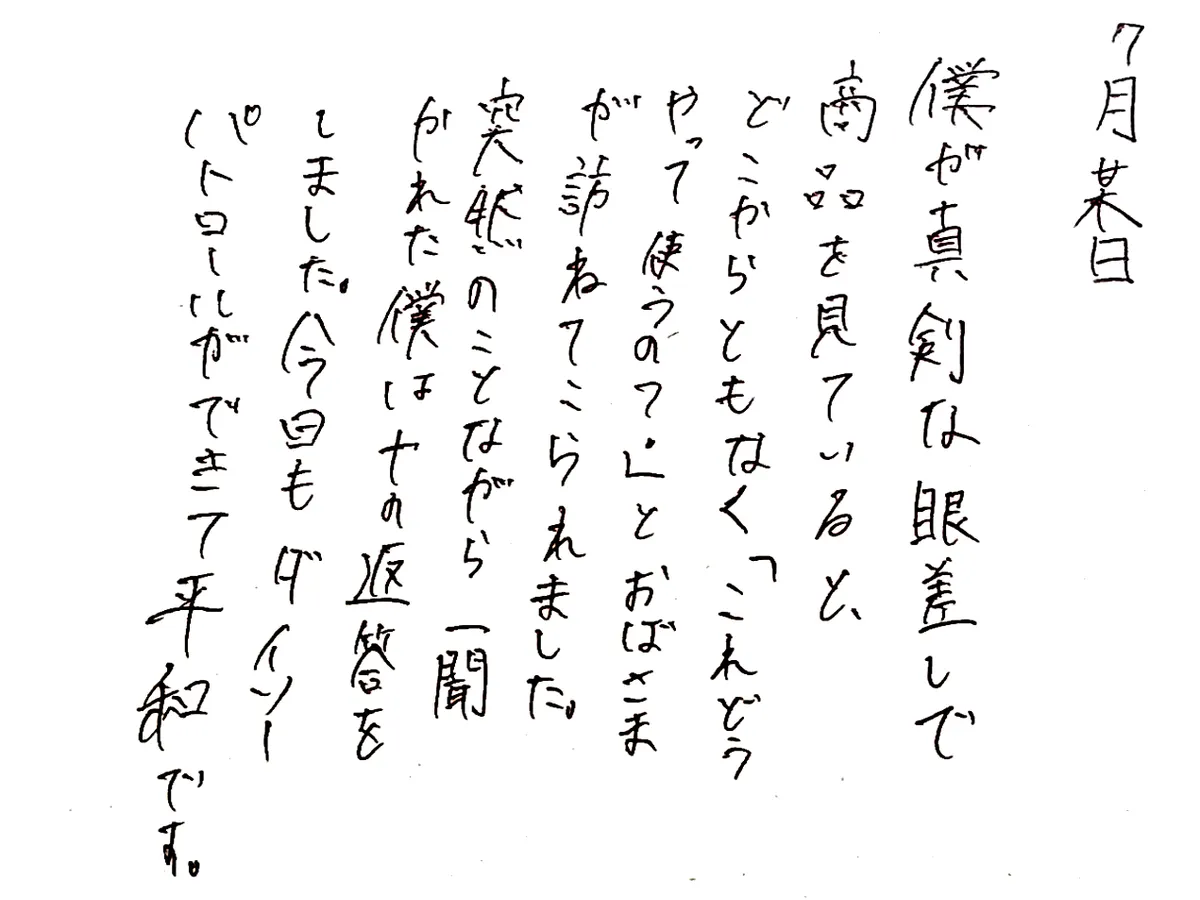 7月某日
僕が真剣な眼差しで
商品を見ていると、
どこからともなく「これどう
やって使うの?」とおばさま
が訪ねてこられました。
突然のことながら一聞
かれた僕は十の返答を
しました。今日もダイソー
パトロールができて平和です。